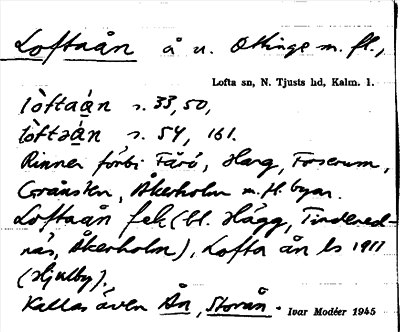 Loftaån å n. Ottinge m. fl.,
Lofta sn, N. Tjusts hd, Kalm. l.
lòftaą́n s. 33, 50,
lòftəą́n s. 54, 161.
Rinner förbi Färö, Harg, Forserum,
Gränsten, Åkerholm m. fl. byar.
Loftaån fek (bl. Hägg, Tindered-
näs, Åkerholm), Lofta ån ls 1911
(Hjulby).
Kallas även Ån, Storån. Ivar Modéer 1945